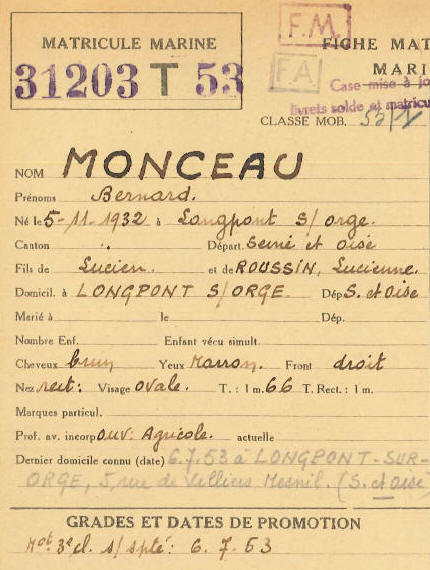 MATRICULE MARINE
31203 T 53
F.M.
FA
FICHE MAT
MARI
Case mise à jo
livrets solde et matricu
CLASSE MOB. 53/1
NOM MONCEAU
Prénoms Bernard.
Né le 5-11-1932 à Longpont s/orge.
Canton .. Départ. Seine et oise
Fils de Lucien. et de ROUSSIN, Lucienne.
Domicil. à LONGPONT S/ORGE. Dép. S. et Oise
Marié à le Dép.
Nombre Enf. Enfant vécu simult.
Cheveux brun Yeux Marron. Front droit
Nez rect: Visage ovale. T. : 1 m. 66 T. Rect. : 1 m.
Marques particul.
Prof. av. incorp ouv: Agricole. actuelle
Dernier domicile connu (date) 6.7.53 à LONGPONT-SUR-
ORGE, 5, rue de Villiers Mesnil. (S. et oise)
GRADES ET DATES DE PROMOTION
Mot 3e cl. s/spté: 6.7.53